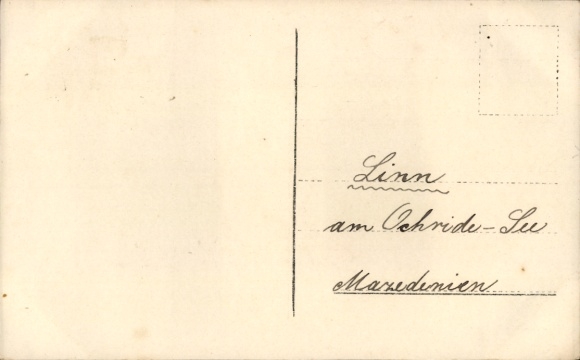 Linn
am Ochride-See
Mazedenien